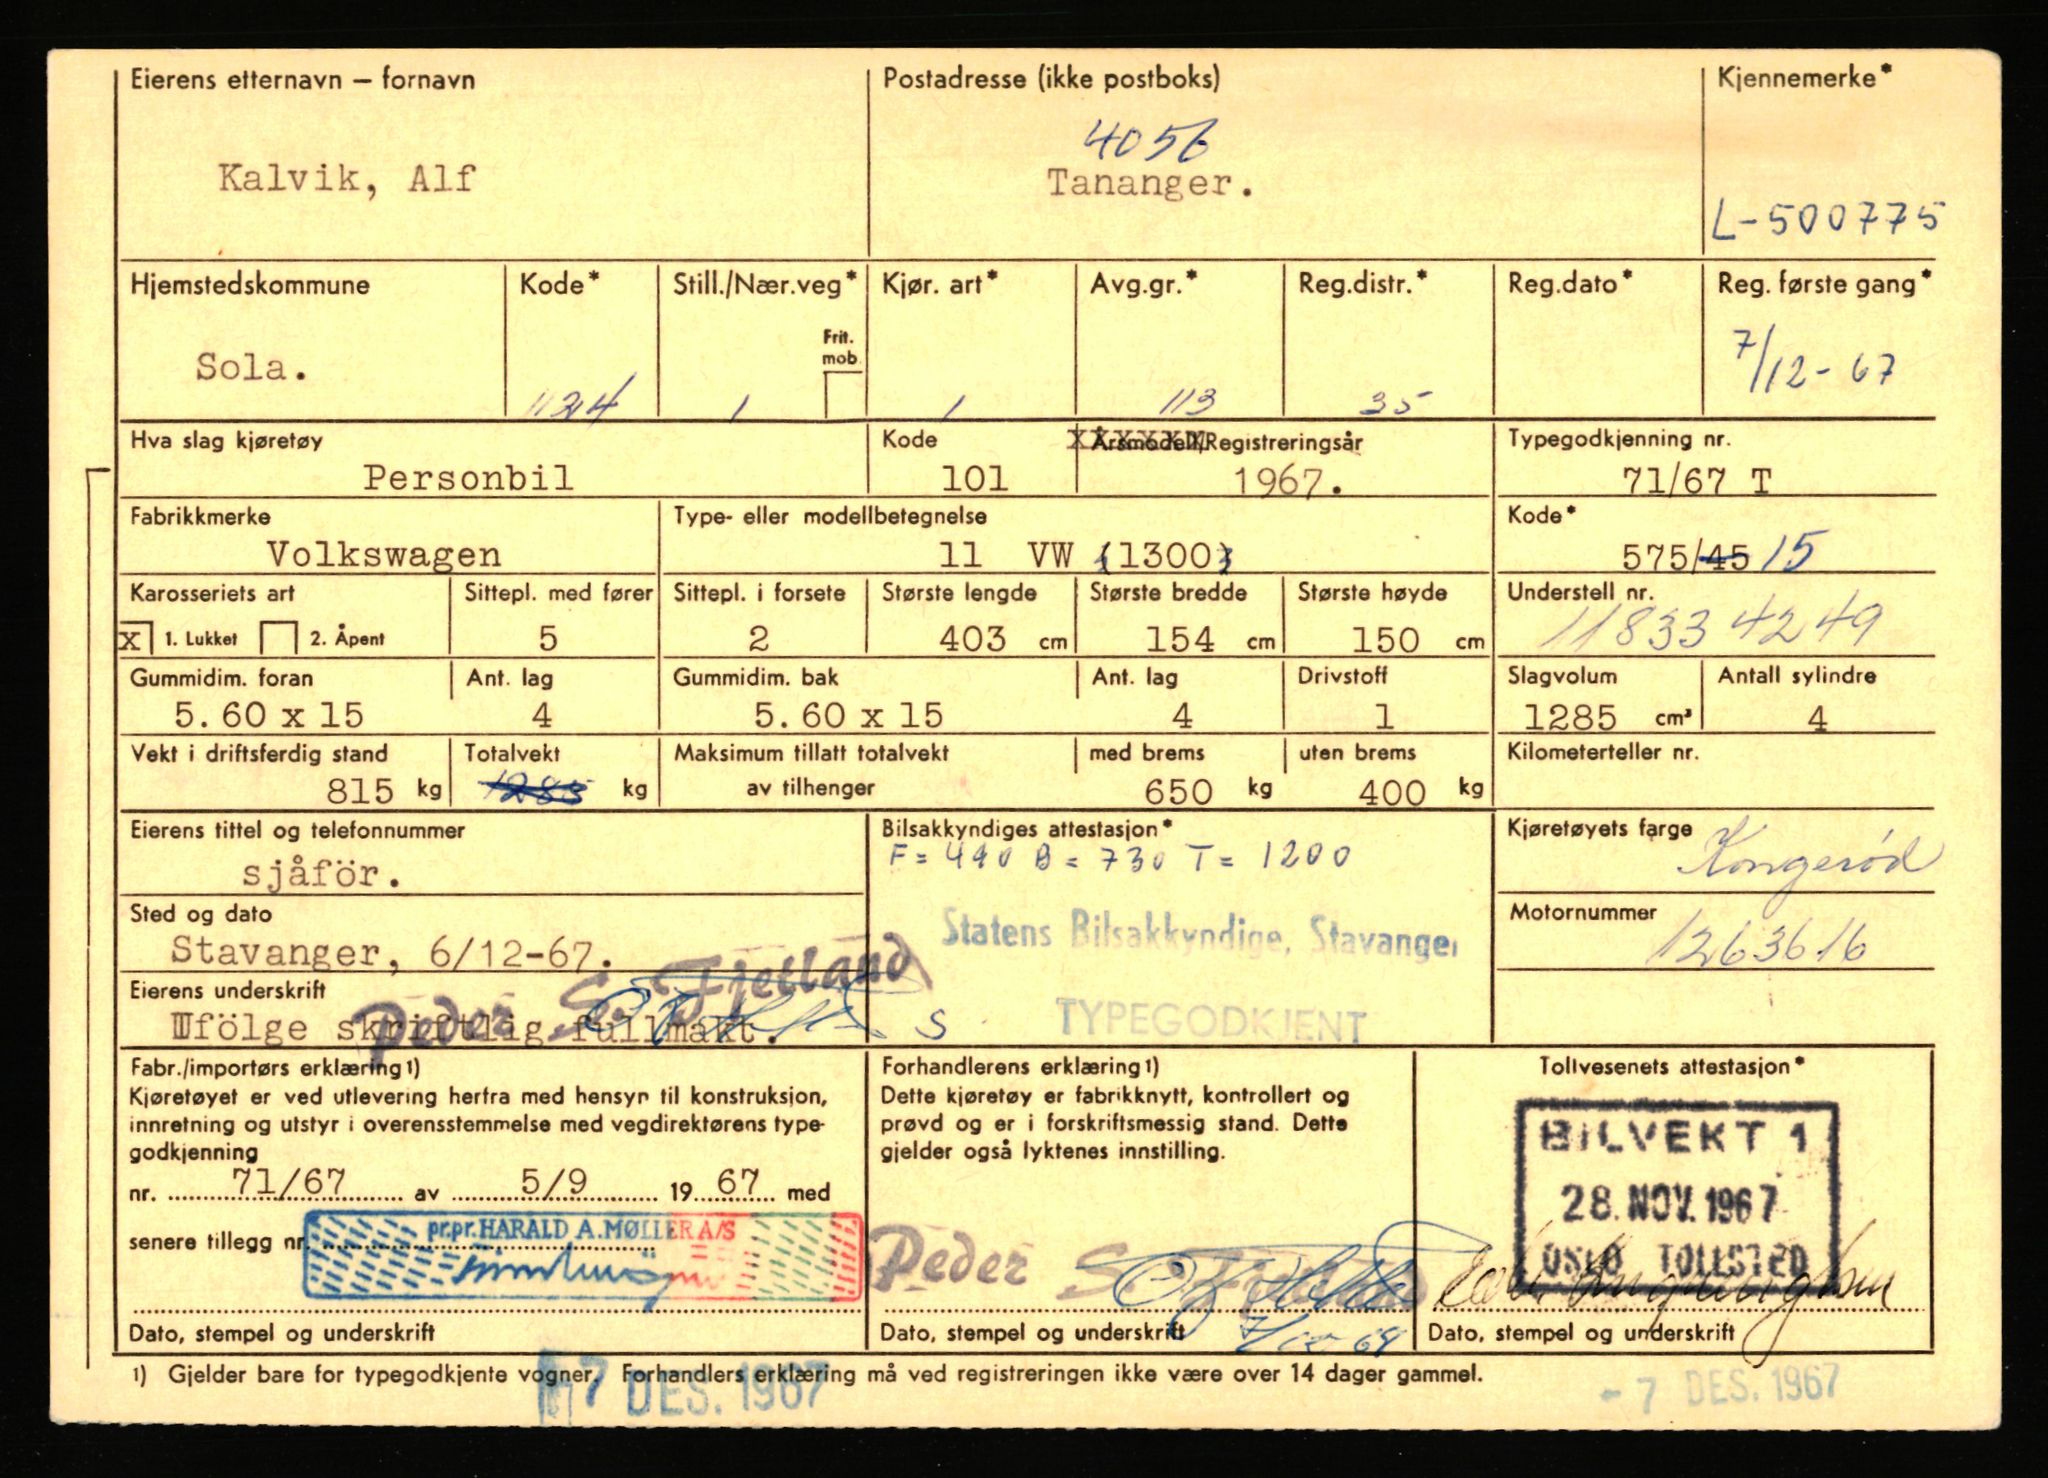 Eierens etternavn – fornavn Postadresse (ikke postboks) Kjennemerke*
4056
Kalvik, Alf Tananger.
L-500775
Hjemstedskommune Kode* Still./Nær.veg* Kjør. art* Avg.gr.* Reg.distr.* Reg.dato* Reg. første gang*
Frit. mob.
Sola. 1124 1 1 113 35 7/12-67
Hva slag kjøretøy Kode Årsmodell/Registreringsår Typegodkjenning nr.
Personbil 101 1967. 71/67 T
Fabrikkmerke Type- eller modellbetegnelse Kode*
Volkswagen 11 VW (1300) 575/45 15
Karosseriets art Sittepl. med fører Sittepl. i forsete Største lengde Største bredde Største høyde Understell nr.
X 1. Lukket 2. Åpent 5 2 403 cm 154 cm 150 cm 118334249
Gummidim. foran Ant. lag Gummidim. bak Ant. lag Drivstoff Slagvolum Antall sylindre
5.60 x 15 4 5.60 x 15 4 1 1285 cm³ 4
Vekt i driftsferdig stand Totalvekt Maksimum tillatt totalvekt med brems uten brems Kilometerteller nr.
815 kg 1285 kg av tilhenger 650 kg 400 kg
Eierens tittel og telefonnummer Bilsakkyndiges attestasjon* Kjøretøyets farge
F= 490 B= 730 T= 1200
sjåför. Kongerød
Sted og dato Motornummer
Statens Bilsakkyndige, Stavanger
Stavanger, 6/12-67. 1263616
Peder S. Fjetland
Eierens underskrift
Ifölge skriftlig fullmakt. S TYPEGODKJENT
Fabr./importørs erklæring1) Forhandlerens erklæring1) Tollvesenets attestasjon*
Kjøretøyet er ved utlevering herfra med hensyn til konstruksjon, Dette kjøretøy er fabrikknytt, kontrollert og
innretning og utstyr i overensstemmelse med vegdirektørens type- prøvd og er i forskriftsmessig stand. Dette
godkjenning gjelder også lyktenes innstilling.
BILVEKT 1
nr. 71/67 av 5/9 1967 med
28. NOV. 1967
senere tillegg nr. pr.pr. HARALD A. MØLLER A/S
OSLO TOLLSTED
Peder S. Fjetland
Dato, stempel og underskrift Dato, stempel og underskrift Dato, stempel og underskrift
1) Gjelder bare for typegodkjente vogner. Forhandlers erklæring må ved registreringen ikke være over 14 dager gammel.
7 DES. 1967 - 7 DES. 1967